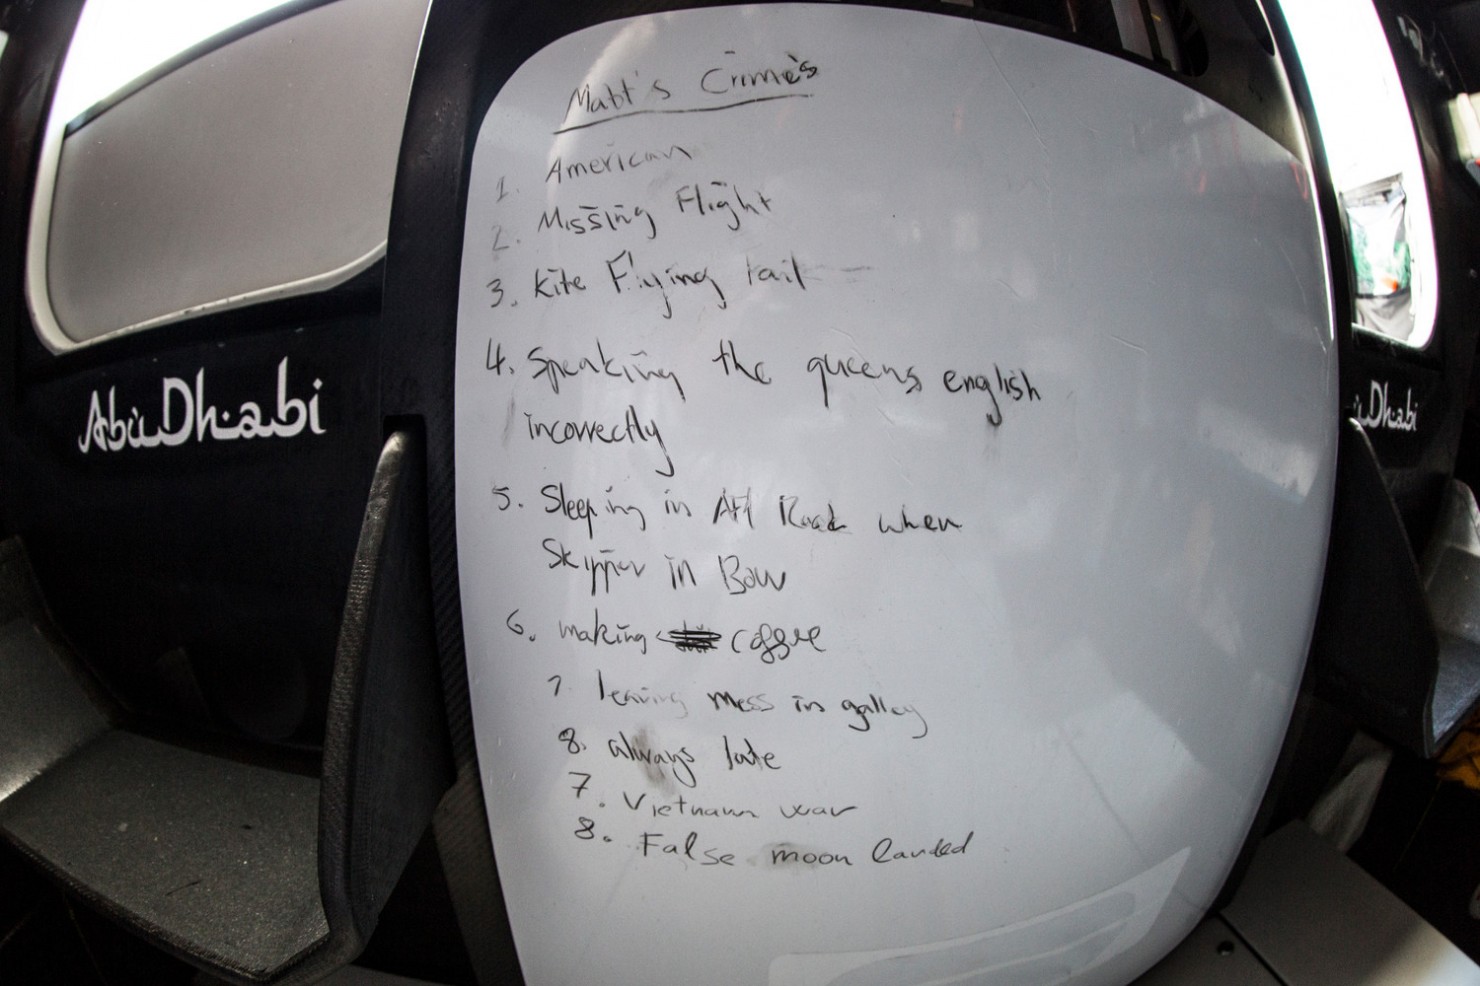 Matt's Crime's
1. American
2. Missing Flight
3. Kite Flying fail
4. Speaking the queens english
incorrectly
5. Sleeping in Aft Rack when
Skipper in Bow
6. making coffee
7 leaving mess in galley
8. always late
7. Vietnam war
8. False moon landed
Abu Dhabi
u Dhabi